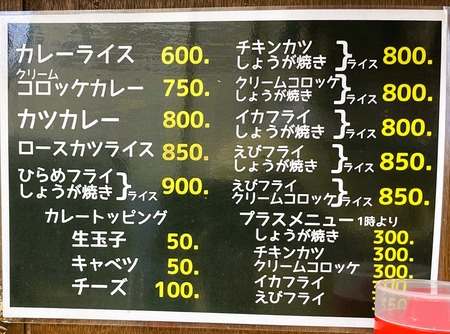 カレーライス 600.
クリーム
コロッケカレー 750.
カツカレー 800.
ロースカツライス 850.
ひらめフライ
しょうが焼き}ライス 900.
カレートッピング
生玉子 50.
キャベツ 50.
チーズ 100.
チキンカツ
しょうが焼き}ライス 800.
クリームコロッケ
しょうが焼き}ライス 800.
イカフライ
しょうが焼き}ライス 800.
えびフライ
しょうが焼き}ライス 850.
えびフライ
クリームコロッケ}ライス 850.
プラスメニュー 1時より
しょうが焼き 300.
チキンカツ 300.
クリームコロッケ 300.
イカフライ
えびフライ 350.